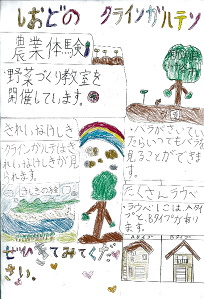 しおどの クラインガルテン
農業体験
・野菜づくり教室を
開催しています。
きれいなけしき
・クラインガルテンはき
れいなけしきが見
られます。
けしきの絵
・バラがさいてい
たらいつでもバラを
見ることができま
す。
たくさんラウベ
・ラウベしこは、Aタイ
プと、Bタイプがあり
ます。
Aタイプ Bタイプ
ぜひきてみてくだ
さい。